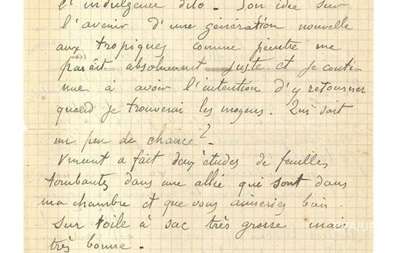 l'indulgence dito - Son idée sur
l'avenir d'une génération nouvelle
aux tropiques comme peintre me
parait absolument juste et je conti
nue à avoir l'intention d'y retourner
quand je trouverai les moyens. Qui sait
un peu de chance?
Vincent a fait deux études de feuilles
tombantes dans une allée qui sont dans
ma chambre et que vous aimeriez bien.
Sur toile à sac très grosse mais
très bonne -